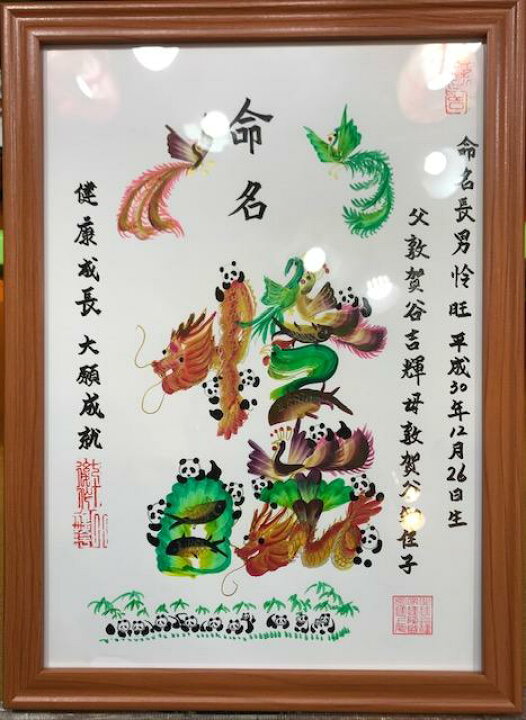 命名長男怜旺 平成30年12月26日生
父敦賀谷吉輝 母敦賀谷 佳子
命名
怜旺
健康成長 大願成就